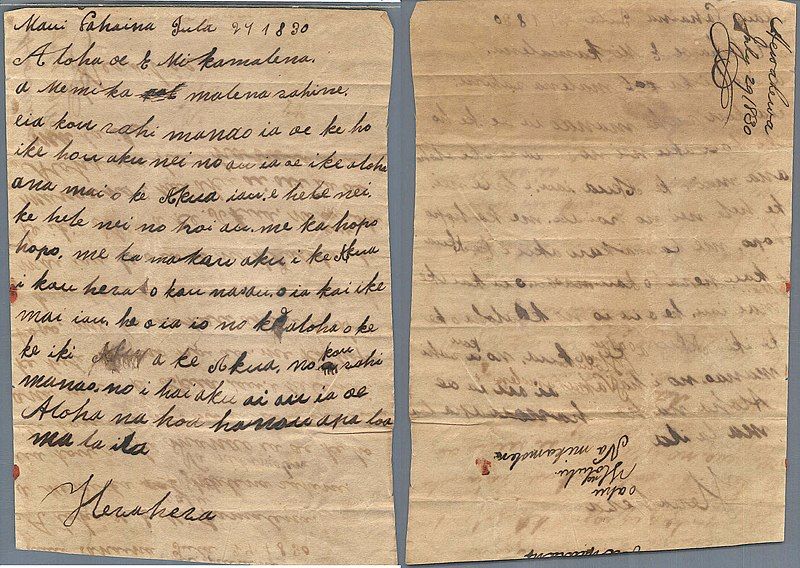 Maui Lahaina Iula 29 1830
Aloha oe E Mikamalena,
a Memika malena vahine,
eia kou vahi manao ia oe ke ho
ike hou aku nei no au ia oe i ke aloha
ana mai o ke Akua iau, e hele nei,
ke hele nei no hoi au, me ka hopo
hopo, me ka makau aku i ke Akua
i kou heva o kou naau, o ia kai ike
mai iau, he oia io no ke aloha o ke
ke iki a ke Akua, no kou vahi
manao, no i hai aku ai au ia oe
Aloha na hoa hanau apa loa
ma la ila
Hevaheva
Hevaheva
July 29/1830
Na mikamalena
Honolulu
Oahu